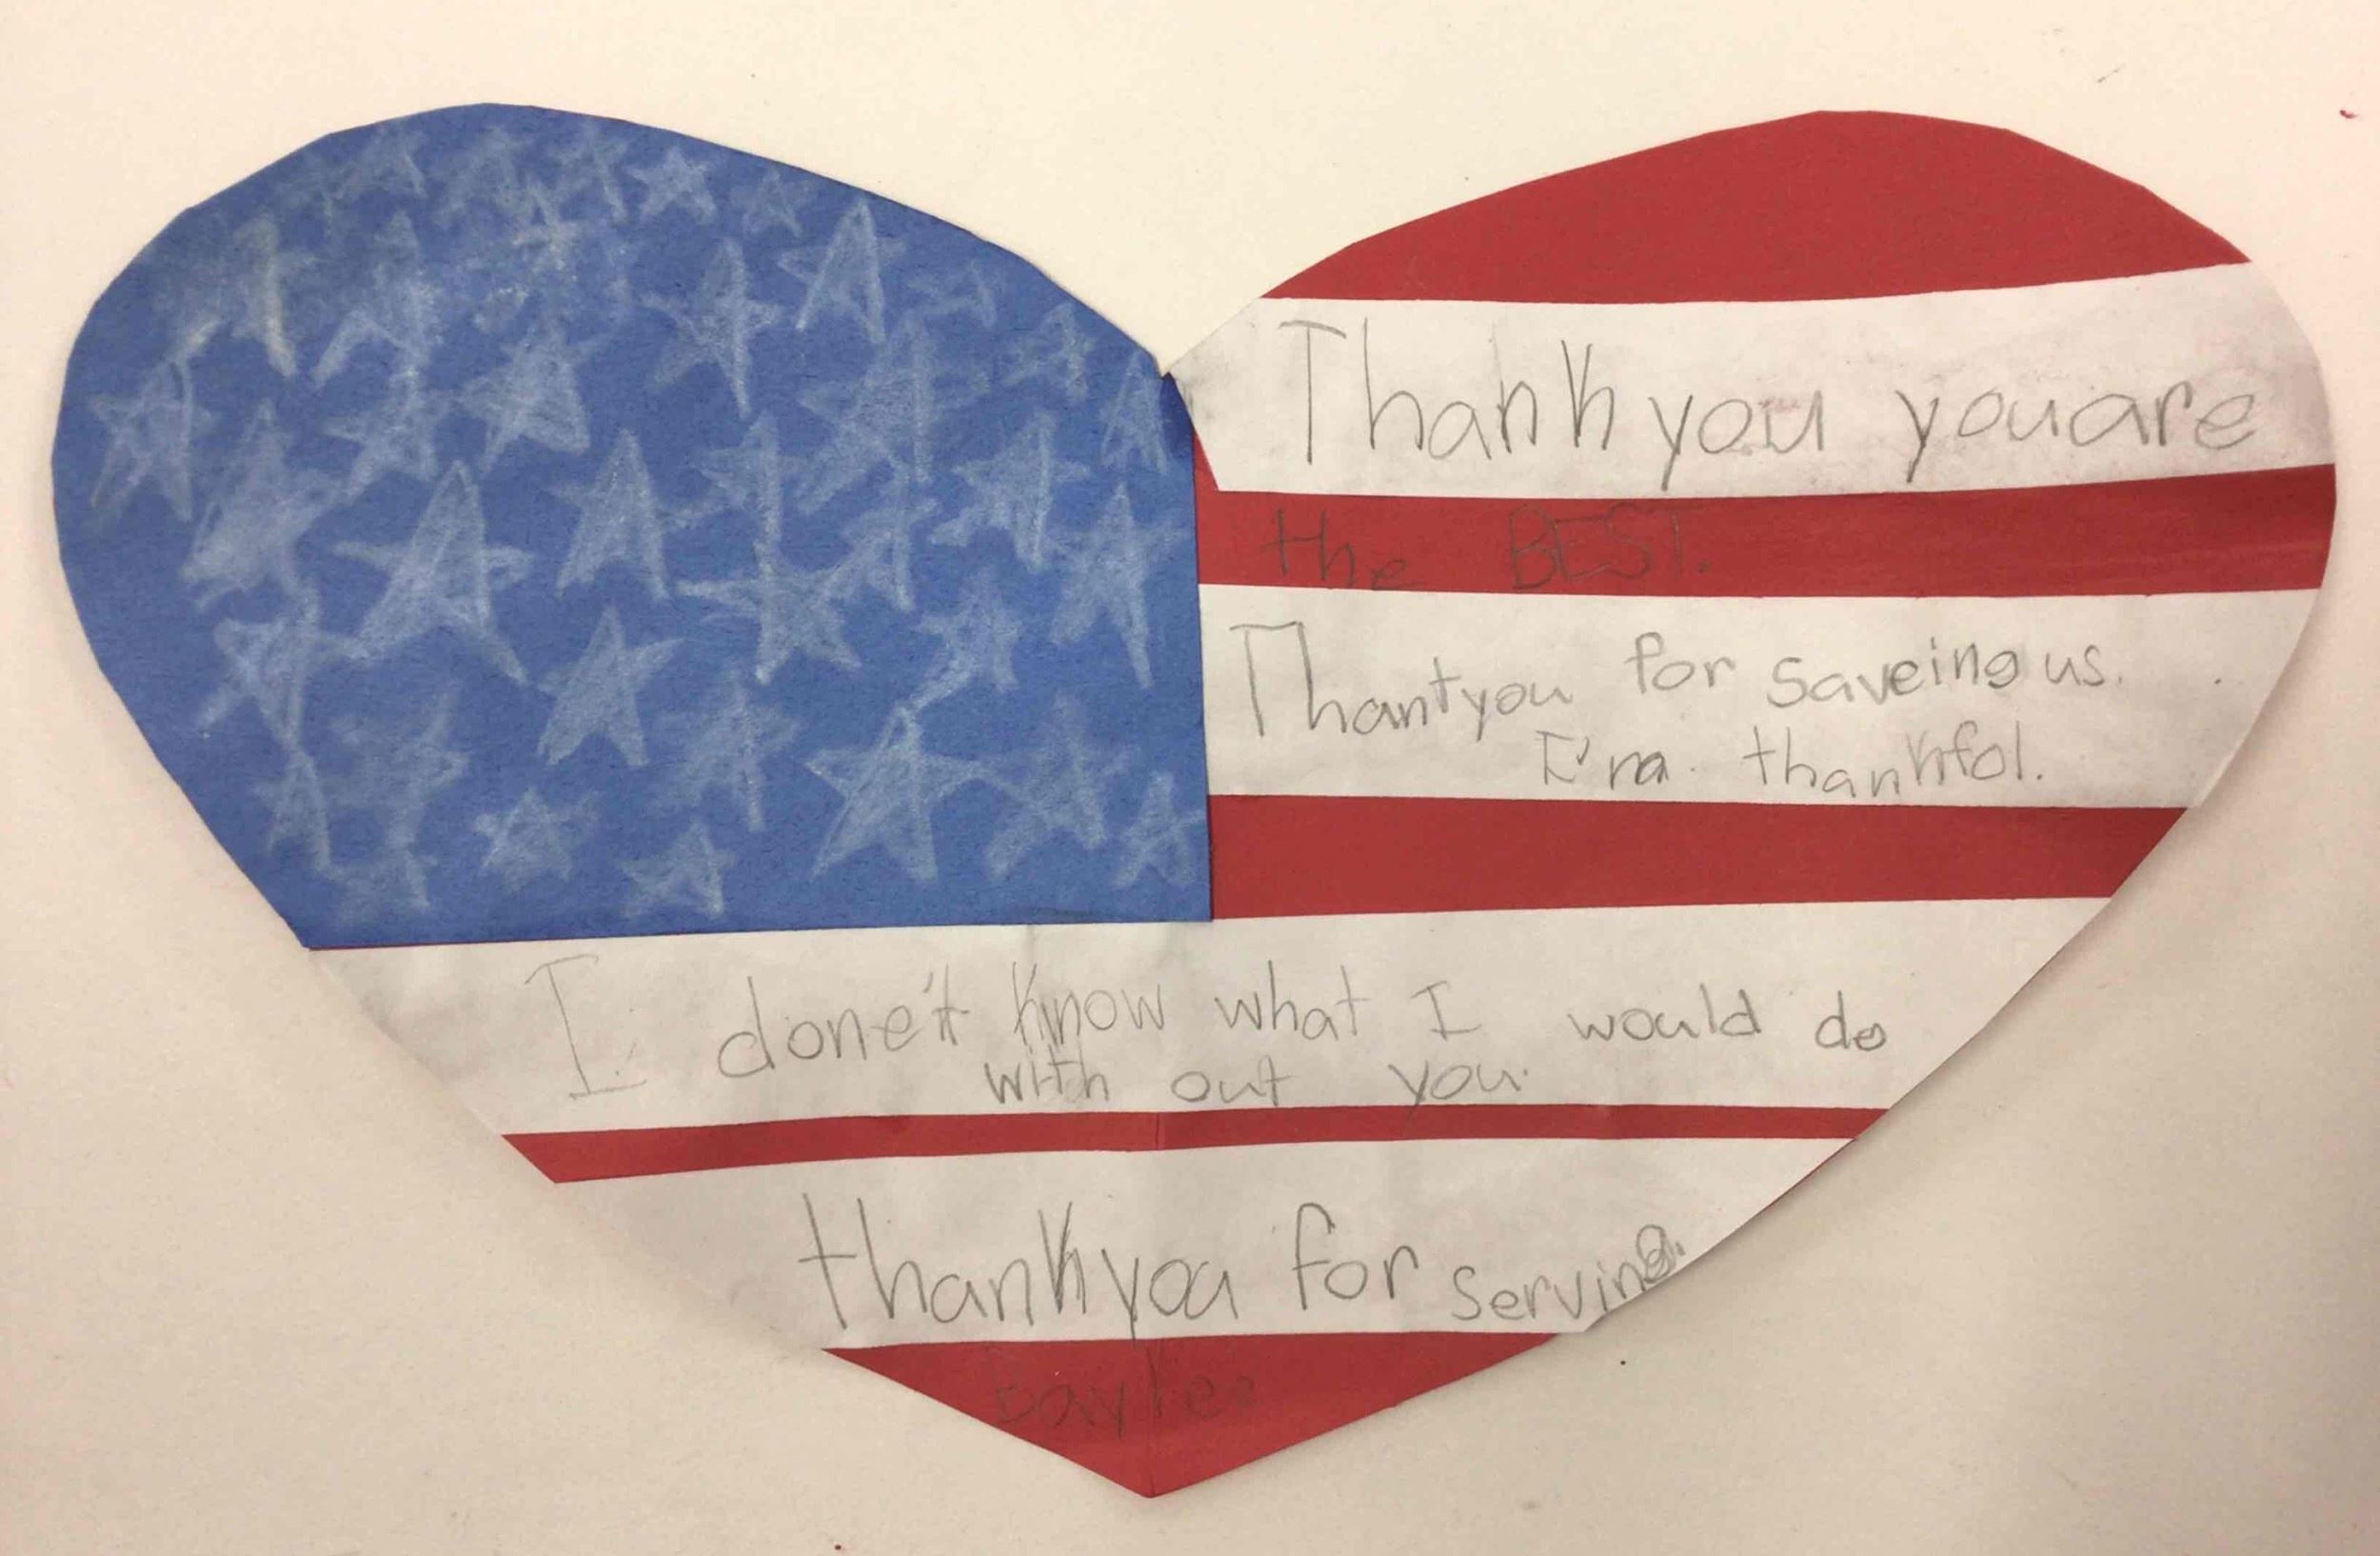 Thank you you are
the BEST.
Thant you for saveing us.
I'm thankfol.
I done't know what I would do
with out you.
thank you for serving.